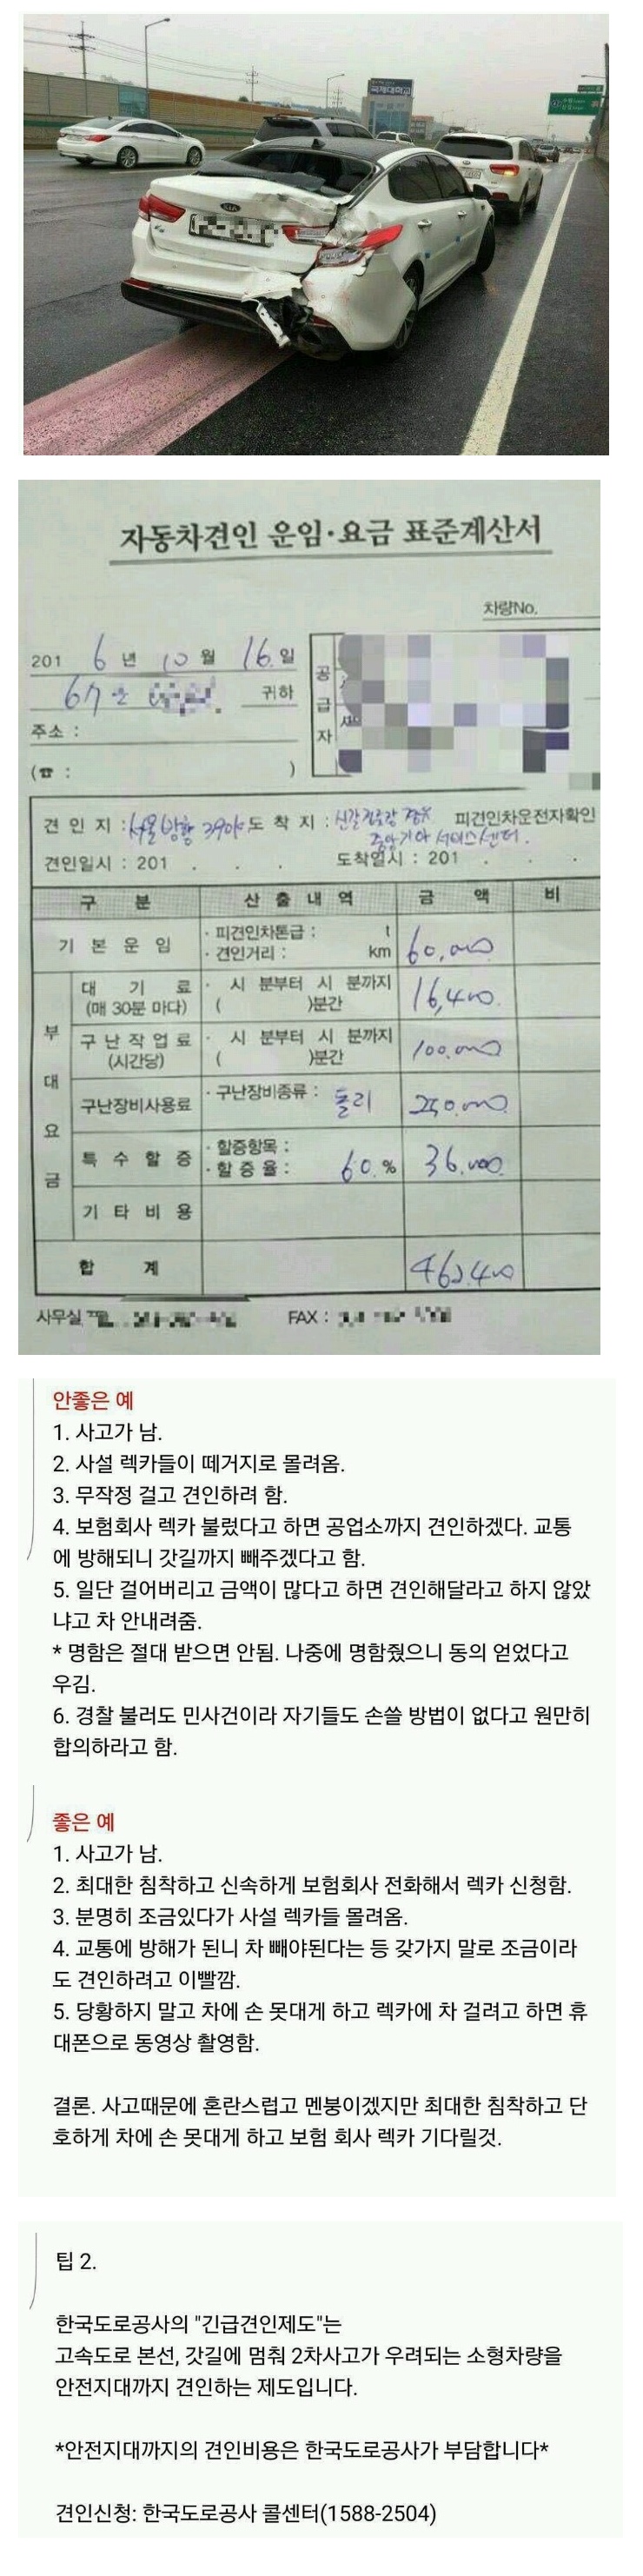 국제대학교
KIA
자동차견인 운임·요금 표준계산서
차량No.
201 6 년 10 월 16 일
귀하
공급자
주소 :
(☎ : )
견 인 지 : 서울방향 390k 도 착 지 : 신갈정류장 경유 피견인차운전자확인
중앙기아 서비스센터.
견인일시 : 201 . . . 도착일시 : 201 . . .
구 분 산 출 내 역 금 액 비
기 본 운 임 · 피견인차톤급 : t
· 견인거리 : km 60,000
부 대 요 금
대 기 료 · 시 분부터 시 분까지
(매 30분 마다) ( )분간 16,400
구 난 작 업 료 · 시 분부터 시 분까지
(시간당) ( )분간 100,000
구난장비사용료 · 구난장비종류 : 돌리 250,000
특 수 할 증 · 할증항목 :
· 할 증 율 : 60 % 36,000
기 타 비 용
합 계 462,400
사무실 FAX :
안좋은 예
1. 사고가 남.
2. 사설 렉카들이 떼거지로 몰려옴.
3. 무작정 걸고 견인하려 함.
4. 보험회사 렉카 불렀다고 하면 공업소까지 견인하겠다. 교통
에 방해되니 갓길까지 빼주겠다고 함.
5. 일단 걸어버리고 금액이 많다고 하면 견인해달라고 하지 않았
냐고 차 안내려줌.
* 명함은 절대 받으면 안됨. 나중에 명함줬으니 동의 얻었다고
우김.
6. 경찰 불러도 민사건이라 자기들도 손쓸 방법이 없다고 원만히
합의하라고 함.
좋은 예
1. 사고가 남.
2. 최대한 침착하고 신속하게 보험회사 전화해서 렉카 신청함.
3. 분명히 조금있다가 사설 렉카들 몰려옴.
4. 교통에 방해가 된니 차 빼야된다는 등 갖가지 말로 조금이라
도 견인하려고 이빨깜.
5. 당황하지 말고 차에 손 못대게 하고 렉카에 차 걸려고 하면 휴
대폰으로 동영상 촬영함.
결론. 사고때문에 혼란스럽고 멘붕이겠지만 최대한 침착하고 단
호하게 차에 손 못대게 하고 보험 회사 렉카 기다릴것.
팁 2.
한국도로공사의 "긴급견인제도"는
고속도로 본선, 갓길에 멈춰 2차사고가 우려되는 소형차량을
안전지대까지 견인하는 제도입니다.
*안전지대까지의 견인비용은 한국도로공사가 부담합니다*
견인신청: 한국도로공사 콜센터(1588-2504)